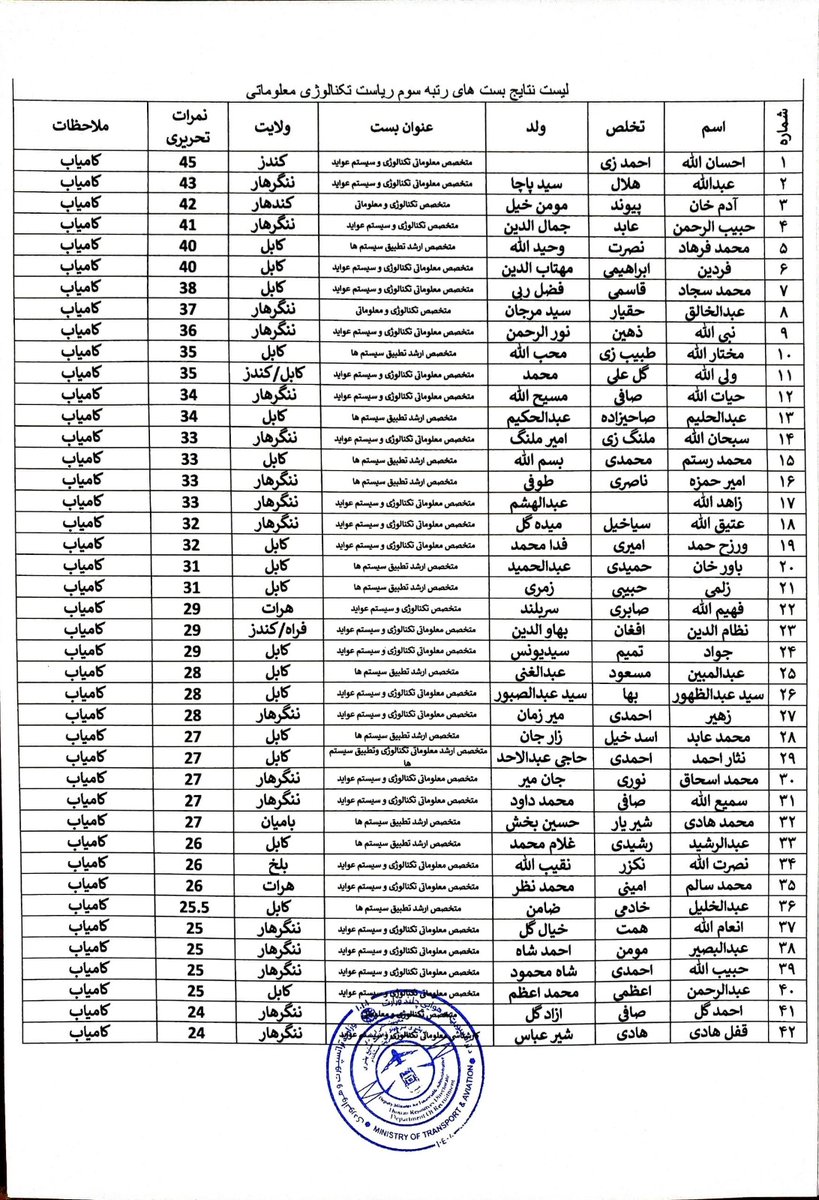 لیست نتایج بست های رتبه سوم ریاست تکنالوژی معلوماتی
شماره اسم تخلص ولد عنوان بست ولایت نمرات تحریری ملاحظات
۱ احسان الله احمد زی متخصص معلوماتی تکنالوژی و سیستم عواید کندز 45 کامیاب
۲ عبدالله هلال سید پاچا متخصص معلوماتی تکنالوژی و سیستم عواید ننگرهار 43 کامیاب
۳ آدم خان پیوند مومن خیل متخصص تکنالوژی و معلوماتی کندهار 42 کامیاب
۴ حبیب الرحمن عابد جمال الدین متخصص تکنالوژی و سیستم عواید ننگرهار 41 کامیاب
۵ محمد فرهاد نصرت وحید الله متخصص ارشد تطبیق سیستم ها کابل 40 کامیاب
۶ فردین ابراهیمی مهتاب الدین متخصص معلوماتی تکنالوژی و سیستم عواید کابل 40 کامیاب
۷ محمد سجاد قاسمی فضل ربی متخصص معلوماتی تکنالوژی و سیستم عواید کابل 38 کامیاب
۸ عبدالخالق حقیار سید مرجان متخصص تکنالوژی و معلوماتی ننگرهار 37 کامیاب
۹ نبی الله ذهین نور الرحمن متخصص معلوماتی تکنالوژی و سیستم عواید ننگرهار 36 کامیاب
۱۰ مختار الله طبیب زی محب الله متخصص ارشد تطبیق سیستم ها کابل 35 کامیاب
۱۱ ولی الله گل علی محمد متخصص معلوماتی تکنالوژی و سیستم عواید کابل/کندز 35 کامیاب
۱۲ حیات الله صافی مسیح الله متخصص معلوماتی تکنالوژی و سیستم عواید ننگرهار 34 کامیاب
۱۳ عبدالحلیم صاحبزاده عبدالحکیم متخصص ارشد تطبیق سیستم ها کابل 34 کامیاب
۱۴ سبحان الله ملنگ زی امیر ملنگ متخصص معلوماتی تکنالوژی و سیستم عواید ننگرهار 33 کامیاب
۱۵ محمد رستم محمدی بسم الله متخصص ارشد تطبیق سیستم ها کابل 33 کامیاب
۱۶ امیر حمزه ناصری طوفی متخصص ارشد تطبیق سیستم ها ننگرهار 33 کامیاب
۱۷ زاهد الله عبدالهشم متخصص معلوماتی تکنالوژی و سیستم عواید ننگرهار 33 کامیاب
۱۸ عتیق الله سیاخیل میده گل متخصص معلوماتی تکنالوژی و سیستم عواید ننگرهار 32 کامیاب
۱۹ ورزح حمد امیری فدا محمد متخصص معلوماتی تکنالوژی و سیستم عواید کابل 32 کامیاب
۲۰ باور خان حمیدی عبدالحمید متخصص ارشد تطبیق سیستم ها کابل 31 کامیاب
۲۱ زلمی حبیبی زمری متخصص ارشد تطبیق سیستم ها کابل 31 کامیاب
۲۲ فهیم الله صابری سربلند متخصص تکنالوژی و سیستم عواید هرات 29 کامیاب
۲۳ نظام الدین افغان بهاو الدین متخصص معلوماتی تکنالوژی و سیستم عواید فراه/کندز 29 کامیاب
۲۴ جواد تمیم سیدیونس متخصص معلوماتی تکنالوژی و سیستم عواید کابل 29 کامیاب
۲۵ عبدالمبین مسعود عبدالغنی متخصص ارشد تطبیق سیستم ها کابل 28 کامیاب
۲۶ سید عبدالظهور بها سید عبدالصبور متخصص معلوماتی تکنالوژی و سیستم عواید کابل 28 کامیاب
۲۷ زهیر احمدی میر زمان متخصص معلوماتی تکنالوژی و سیستم عواید ننگرهار 28 کامیاب
۲۸ محمد عابد اسد خیل زار جان متخصص ارشد تطبیق سیستم ها کابل 27 کامیاب
۲۹ نثار احمد احمدی حاجی عبدالاحد متخصص ارشد معلوماتی تکنالوژی وتطبیق سیستم ها کابل 27 کامیاب
۳۰ محمد اسحاق نوری جان میر متخصص معلوماتی تکنالوژی و سیستم عواید ننگرهار 27 کامیاب
۳۱ سمیع الله صافی محمد داود متخصص معلوماتی تکنالوژی و سیستم عواید ننگرهار 27 کامیاب
۳۲ محمد هادی شیر یار حسین بخش متخصص ارشد تطبیق سیستم ها بامیان 27 کامیاب
۳۳ عبدالرشید رشیدی غلام محمد متخصص ارشد تطبیق سیستم ها کابل 26 کامیاب
۳۴ نصرت الله نکزر نقیب الله متخصص معلوماتی تکنالوژی و سیستم عواید بلخ 26 کامیاب
۳۵ محمد سالم امینی محمد نظر متخصص معلوماتی تکنالوژی و سیستم عواید هرات 26 کامیاب
۳۶ عبدالخلیل خادمی ضامن متخصص ارشد تطبیق سیستم ها کابل 25.5 کامیاب
۳۷ انعام الله همت خیال گل متخصص معلوماتی تکنالوژی و سیستم عواید ننگرهار 25 کامیاب
۳۸ عبدالبصیر مومن احمد شاه متخصص معلوماتی تکنالوژی و سیستم عواید ننگرهار 25 کامیاب
۳۹ حبیب الله احمدی شاه محمود متخصص معلوماتی تکنالوژی و سیستم عواید ننگرهار 25 کامیاب
۴۰ عبدالرحمن اعظمی محمد اعظم متخصص معلوماتی تکنالوژی و سیستم عواید کابل 25 کامیاب
۴۱ احمد گل صافی ازاد گل متخصص تکنالوژی و معلوماتی ننگرهار 24 کامیاب
۴۲ قفل هادی هادی شیر عباس معلوماتی تکنالوژی و سیستم عواید ننگرهار 24 کامیاب
Human Resources Directorate
Department Of Recruitment
MINISTRY OF TRANSPORT & AVIATION